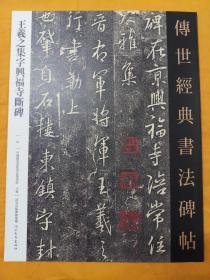 傳世經典書法碑帖
碑在京興福寺陪常住
大雅集
晉右軍將軍王羲之
行書勒上
肇自石樓東鎮守封
王羲之集字興福寺斷碑